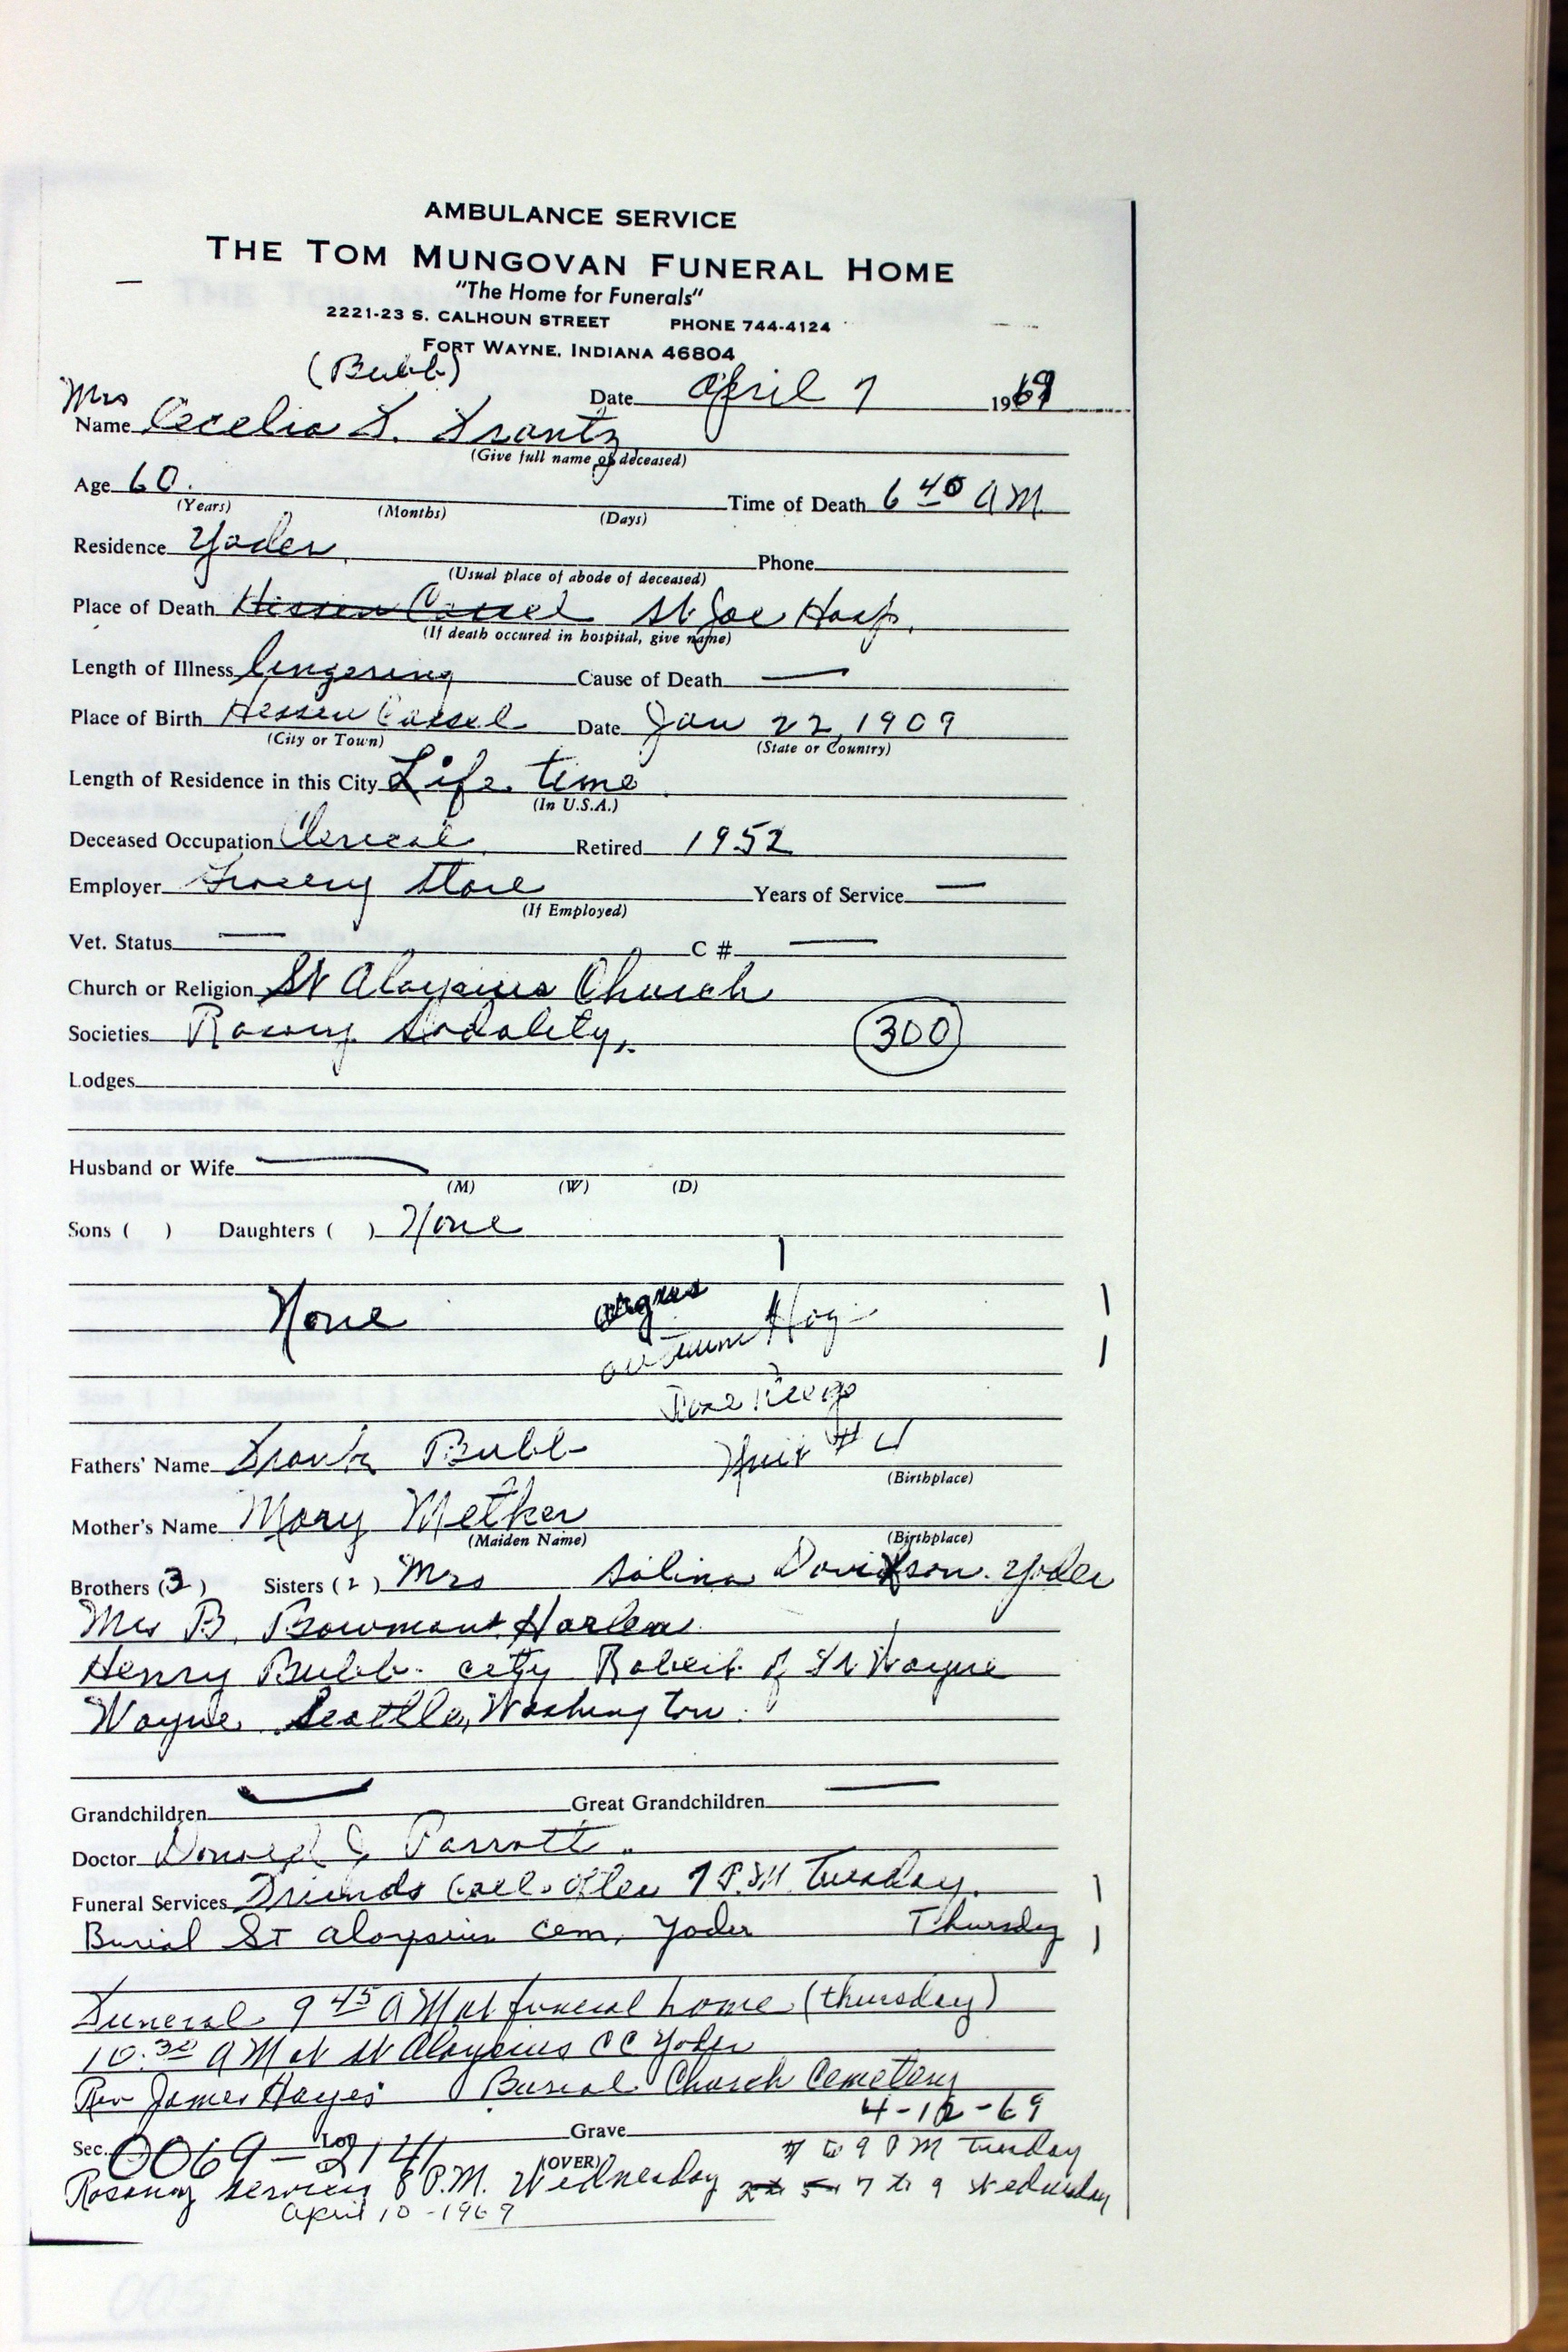 AMBULANCE SERVICE
THE TOM MUNGOVAN FUNERAL HOME
"The Home for Funerals"
2221-23 S. CALHOUN STREET PHONE 744-4124
FORT WAYNE, INDIANA 46804
(Bubb)
Date April 7 1969
Mrs
Name Cecelia
(Give full name of deceased)
Age 60. Time of Death 6 40 AM
(Years) (Months) (Days)
Residence Yoder Phone
(Usual place of abode of deceased)
Place of Death Hessen Cassel St Joe Hosp.
(If death occured in hospital, give name)
Length of Illness lingering Cause of Death —
Place of Birth Hessen Cassel Date Jan 22, 1909
(City or Town) (State or Country)
Length of Residence in this City Life time
(In U.S.A.)
Deceased Occupation Clerical Retired 1952
Employer Grocery Store Years of Service —
(If Employed)
Vet. Status — C # —
Church or Religion St Aloysius Church
Societies Rosary Sodality, 300
Lodges
Husband or Wife —
(M) (W) (D)
Sons ( ) Daughters ( ) None
None Argus
autumn
# 4
Fathers' Name Frank Bubb
(Birthplace)
Mother's Name Mary Metker
(Maiden Name) (Birthplace)
Brothers (3) Sisters (2) Mrs Salina Davidson. Yoder
Mrs B. Bowman Harlan
Henry Bubb. city Robert of Ft Wayne
Wayne, Seattle, Washington.
Grandchildren — Great Grandchildren —
Doctor Donald Parrott.
Funeral Services Friends Call. after 7 P.M. Tuesday.
Burial St Aloysius Cem, Yoder Thursdy
Funeral. 9 45 AM at funeral home (thursday)
10:30 AM at St Aloysius CC Yoder
Rev James Hayes Burial. Church Cemetery
4-12-69
Sec. 0069-2141 Lot Grave
7 to 9 PM Tuesday
(OVER)
Rosary services 8 P.M. Wednesday 7 to 9 Wednesday
April 10-1969